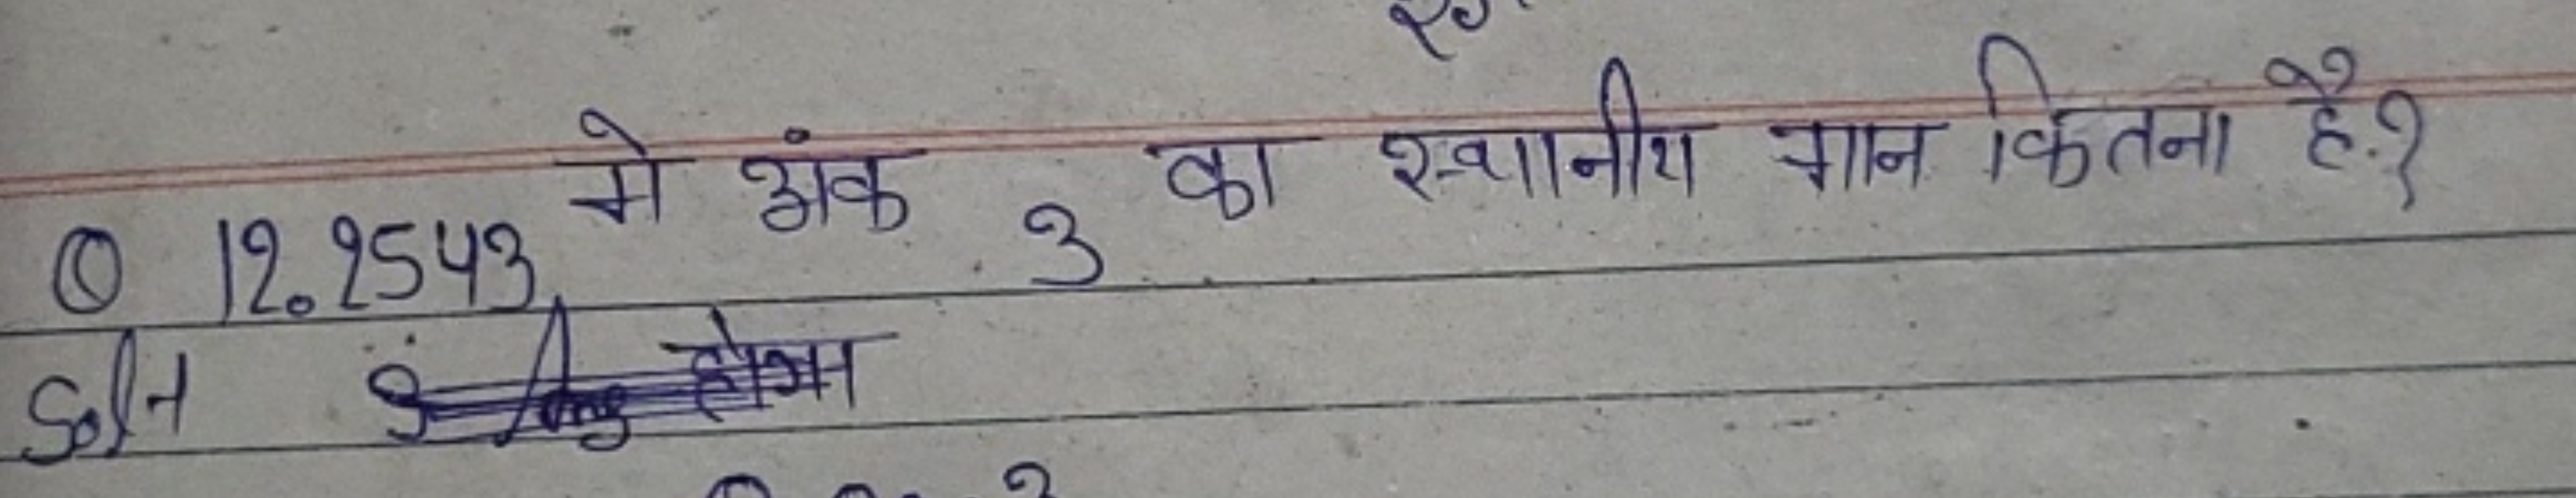 Q 12.2543 में अंक 3 का स्थानीय मान कितना है.?
Soln